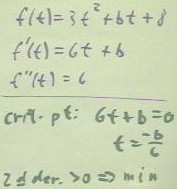 f(t)=3t²+bt+8
f'(t)=6t+b
f"(t)=6
crit. pt: 6t+b=0
t=-b/6
2d der. >0 ⇒ min